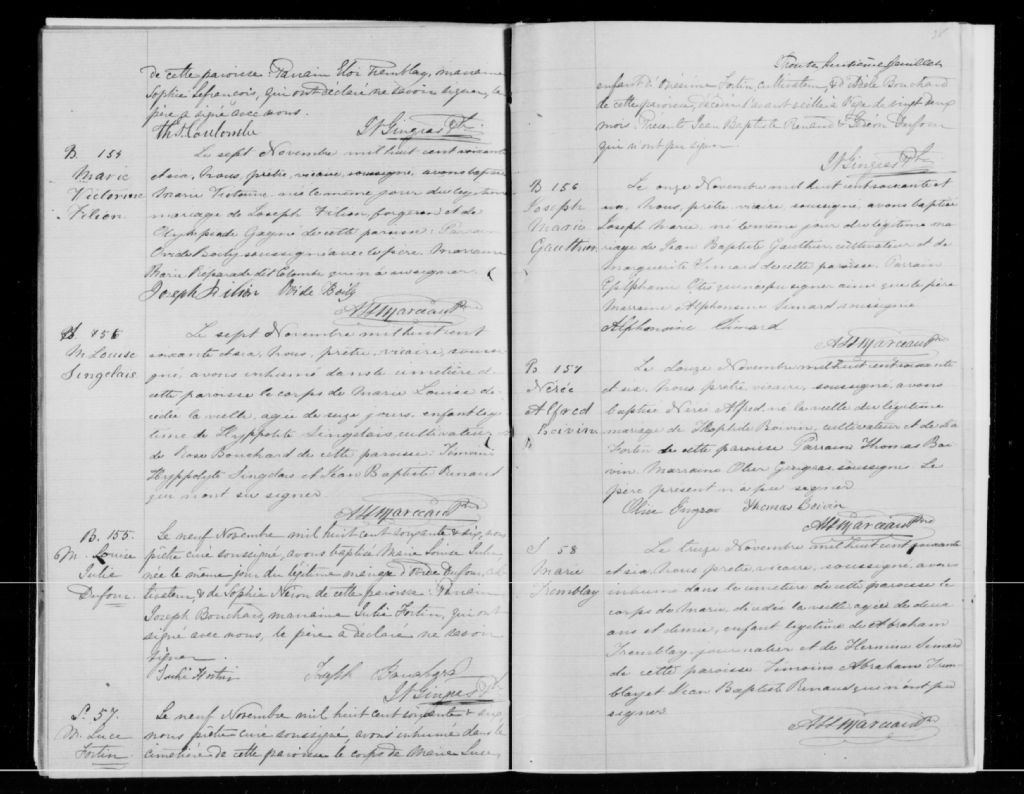 de cette paroisse. Parrain Eloi Tremblay, marraine
Sophie Lefrançois, qui ont déclaré ne savoir signer, le
père a signé avec nous.
Th. Coulombe
J. N. Gingras Ptre
B. 154
Marie
Victorine
Filion
Le sept Novembre mil huit cent soixante
et six, Nous, prêtre, vicaire, soussigné, avons baptisé
Marie Victorine née le même jour du légitime
mariage de Joseph Filion forgeron et de
Gagné de cette paroisse: Parrain
Ovide Boily soussigné avec le père. Marraine
Marie dit qui n'a su signer.
Joseph Filion Ovide Boily
Marceau Ptre
M. Louise
Singelais
Le sept Novembre mil huit cent
soixante et six, Nous, prêtre, vicaire, soussi
gné, avons inhumé dans le cimetière de
cette paroisse le corps de Marie Louise dé
cédée la veille, agée de seize jours, enfant légi
time de Hyppolite Singelais, cultivateur,
de Rose Bouchard de cette paroisse. Témoins
Hyppolyte Singelais et Jean Baptiste Renaud
qui n'ont su signer
Marceau Ptre
B. 155.
M. Louise
Julie
Dufour
Le neuf Novembre mil huit cent soixante & six, nous
prêtre curé soussigné, avons baptisé Marie Louise Julie,
née le même jour du légitime mariage d'Ovide Dufour, cul
tivateur, & de Sophie Néron de cette paroisse: Parrain
Joseph Bouchard, marraine Julie Fortin, qui ont
signé avec nous, le père a déclaré ne savoir
signer.
Julie Fortin Joseph Bouchard
J. N. Gingras Ptre
S. 57.
M. Luce
Fortin
Le neuf Novembre mil huit cent soixante & six
nous prêtre curé soussigné, avons inhumé dans le
cimetière de cette paroisse le corps de Marie Luce,
Trente huitième feuillet
enfant d'Onésime Fortin, cultivateur, & d'Adèle Bouchard
de cette paroisse, décédée l'avant veille à l'age de vingt deux
mois. Présents Jean Baptiste Renaud & Gédéon Dufour
qui n'ont pu signer.
J. N. Gingras Ptre
B 156
Joseph
Marie
Gauthier
Le onze Novembre mil huit cent soixante et
six, Nous, prêtre, vicaire, soussigné, avons baptisé
Joseph Marie, né le même jour du légitime ma
riage de Jean Baptiste Gauthier, cultivateur et de
Marguerite Simard de cette paroisse. Parrain
qui n'a pu signer ainsi que le père
Marraine Alphonsine Simard soussignée
Alphonsine Simard
Marceau Ptre
B 157
Nérée
Alfred
Boivin
Le douze Novembre mil huit cent soixante
et six, Nous, prêtre, vicaire, soussigné, avons
baptisé Nérée Alfred, né la veille du légitime
mariage de Boivin, cultivateur et de
Fortin de cette paroisse Parrain Thomas Boi
vin. Marraine soussignés. Le
père présent n'a pu signer
Thomas Boivin
Marceau Ptre
S 58
Marie
Tremblay
Le treize Novembre mil huit cent soixante
et six, Nous, prêtre, vicaire, soussigné, avons
inhumé dans le cimetière de cette paroisse le
corps de Marie, décédée la veille agée de deux
ans et demie, enfant légitime de Abraham
Tremblay, journalier et de Hermine Simard
de cette paroisse Témoins Abraham Trem
blay et Jean Baptiste Renaud qui n'ont pu
signer
Marceau Ptre